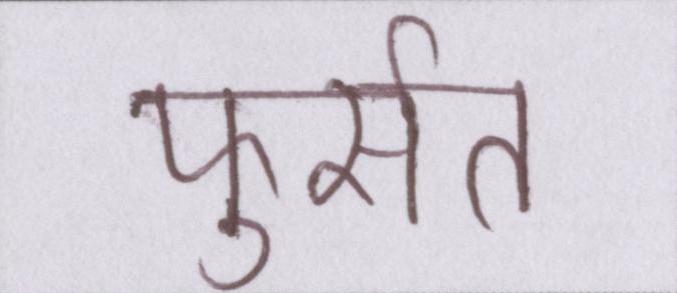 फुर्सत